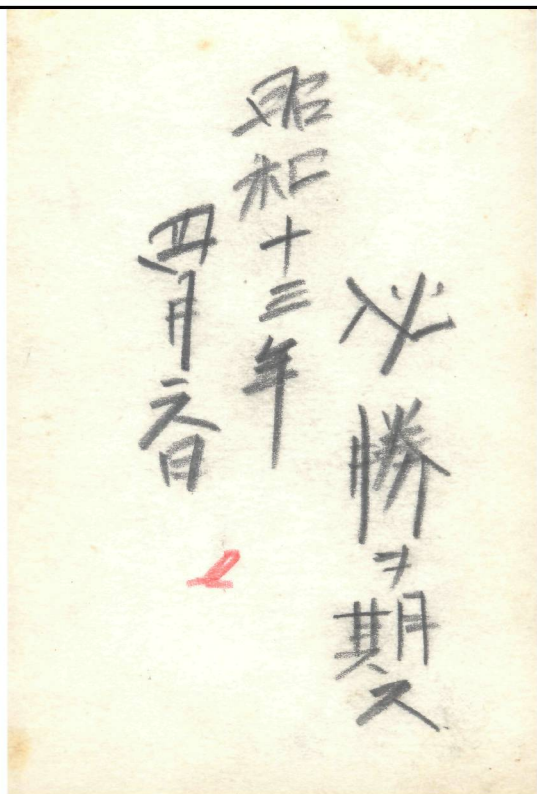 必勝ヲ期ス
昭和十三年
四月六日